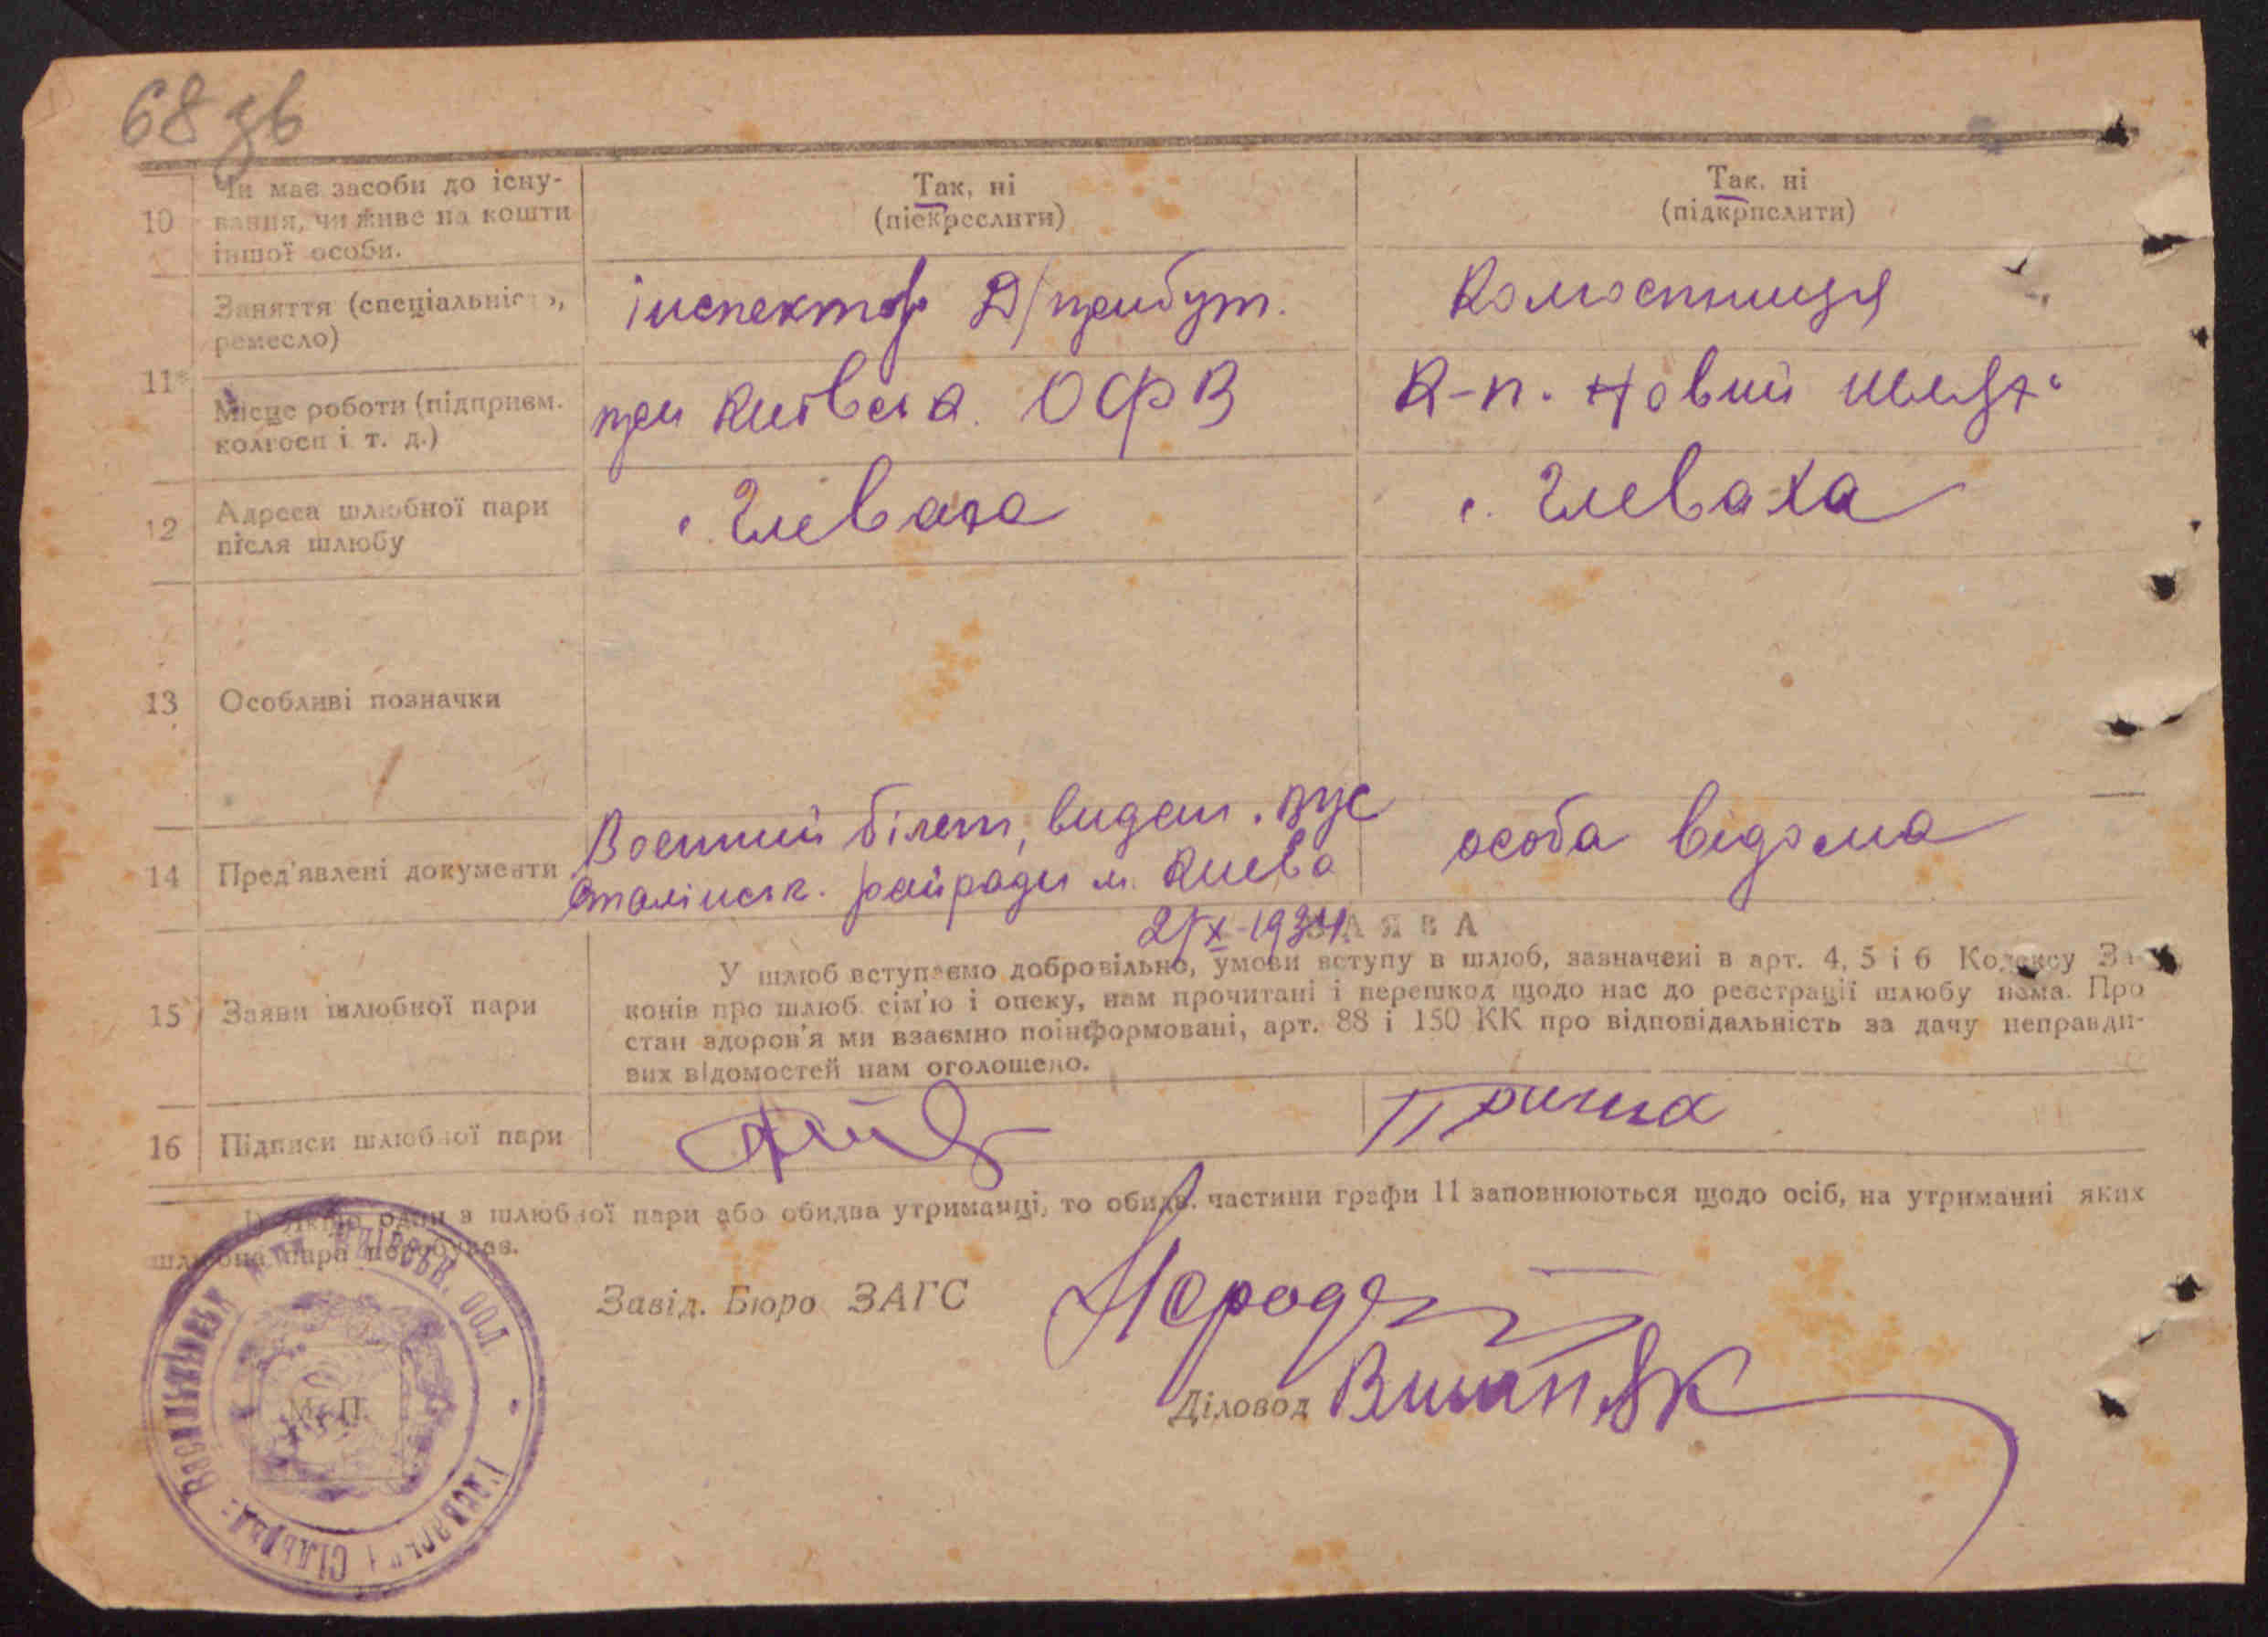 68 зв
10 Чи має засоби до існу-
вання, чи живе на кошти
іншої особи.
Так, ні
(піекресслити)
Так, ні
(підкрпслити)
11
Заняття (спеціальність,
ремесло)
інспектор Д/прибут.
Колгоспниця
Місце роботи (підприєм.
колгосп і т. д.)
при Київськ. ОФВ
К-п. Новий шлях
12 Адреса шлюбної пари
після шлюбу
с. Глеваха
с. Глеваха
13 Особливі позначки
14 Пред'явлені документи
Воєнний білет, видан. вус
Сталінськ. райради м. Києва
2/X-1934
особа відома
ЗАЯВА
15 Заяви шлюбної пари
У шлюб вступаємо добровільно, умови вступу в шлюб, зазначені в арт. 4, 5 і 6 Кодексу За-
конів про шлюб сім'ю і опеку, нам прочитані і перешкод щодо нас до реєстрації шлюбу нема. Про
стан здоров'я ми взаємно поінформовані, арт. 88 і 150 КК про відповідальність за дачу неправди-
вих відомостей нам оголошено.
16 Підписи шлюбної пари
1) Якщо один з шлюбної пари або обидва утриманці, то обидв. частини графи 11 заповнюються щодо осіб, на утриманні яких
шлюбна пара перебуває.
Завід. Бюро ЗАГС
Діловод Вишняк
М. П.
Васильківськ Київськ. обл.
Глевахськ сільрада